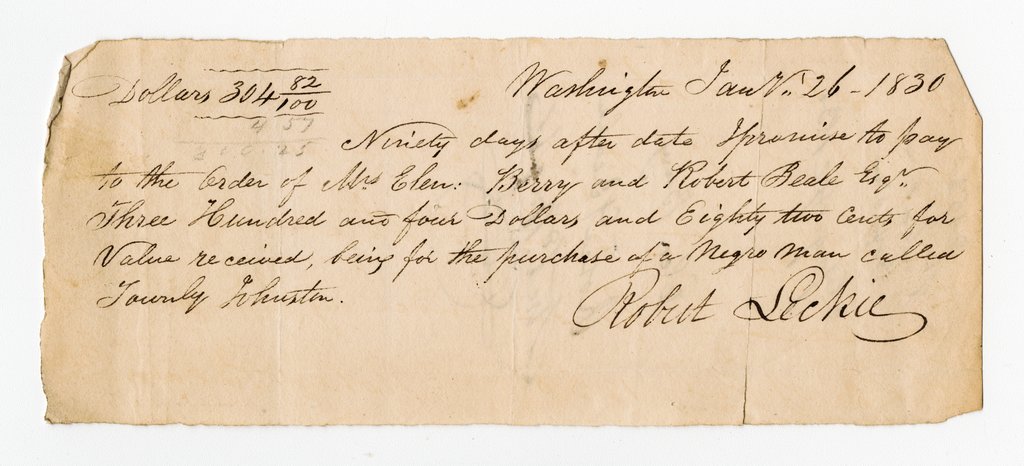 Dollars 304 82/100
Washington Jany. 26 - 1830
4 57
Ninety days after date I promise to pay
to the order of Mrs Elen: Berry and Robert Beale Esqr.
Three Hundred and four Dollars and Eighty two Cents for
Value received, being for the purchase of a Negro man called
Townly Johnston.
Robert Leckie